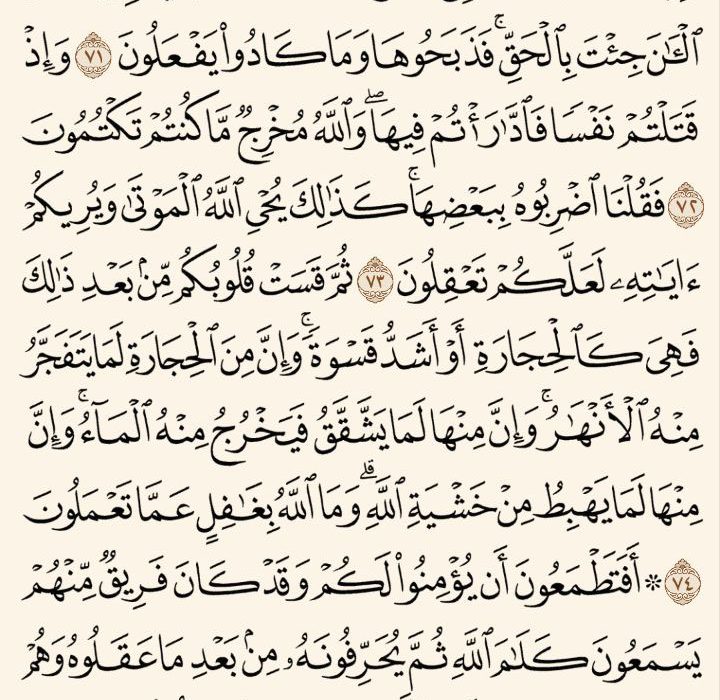 ٱلْـَٰٔنَ جِئْتَ بِٱلْحَقِّ ۚ فَذَبَحُوهَا وَمَا كَادُوا۟ يَفْعَلُونَ ٧١ وَإِذْ
قَتَلْتُمْ نَفْسًا فَٱدَّٰرَْٰٔتُمْ فِيهَا ۖ وَٱللَّهُ مُخْرِجٌ مَّا كُنتُمْ تَكْتُمُونَ
٧٢ فَقُلْنَا ٱضْرِبُوهُ بِبَعْضِهَا ۚ كَذَٰلِكَ يُحْىِ ٱللَّهُ ٱلْمَوْتَىٰ وَيُرِيكُمْ
ءَايَٰتِهِۦ لَعَلَّكُمْ تَعْقِلُونَ ٧٣ ثُمَّ قَسَتْ قُلُوبُكُم مِّنۢ بَعْدِ ذَٰلِكَ
فَهِىَ كَٱلْحِجَارَةِ أَوْ أَشَدُّ قَسْوَةً ۚ وَإِنَّ مِنَ ٱلْحِجَارَةِ لَمَا يَتَفَجَّرُ
مِنْهُ ٱلْأَنْهَٰرُ ۚ وَإِنَّ مِنْهَا لَمَا يَشَّقَّقُ فَيَخْرُجُ مِنْهُ ٱلْمَآءُ ۚ وَإِنَّ
مِنْهَا لَمَا يَهْبِطُ مِنْ خَشْيَةِ ٱللَّهِ ۗ وَمَا ٱللَّهُ بِغَٰفِلٍ عَمَّا تَعْمَلُونَ
٧٤ ۞ أَفَتَطْمَعُونَ أَن يُؤْمِنُوا۟ لَكُمْ وَقَدْ كَانَ فَرِيقٌ مِّنْهُمْ
يَسْمَعُونَ كَلَٰمَ ٱللَّهِ ثُمَّ يُحَرِّفُونَهُۥ مِنۢ بَعْدِ مَا عَقَلُوهُ وَهُمْ